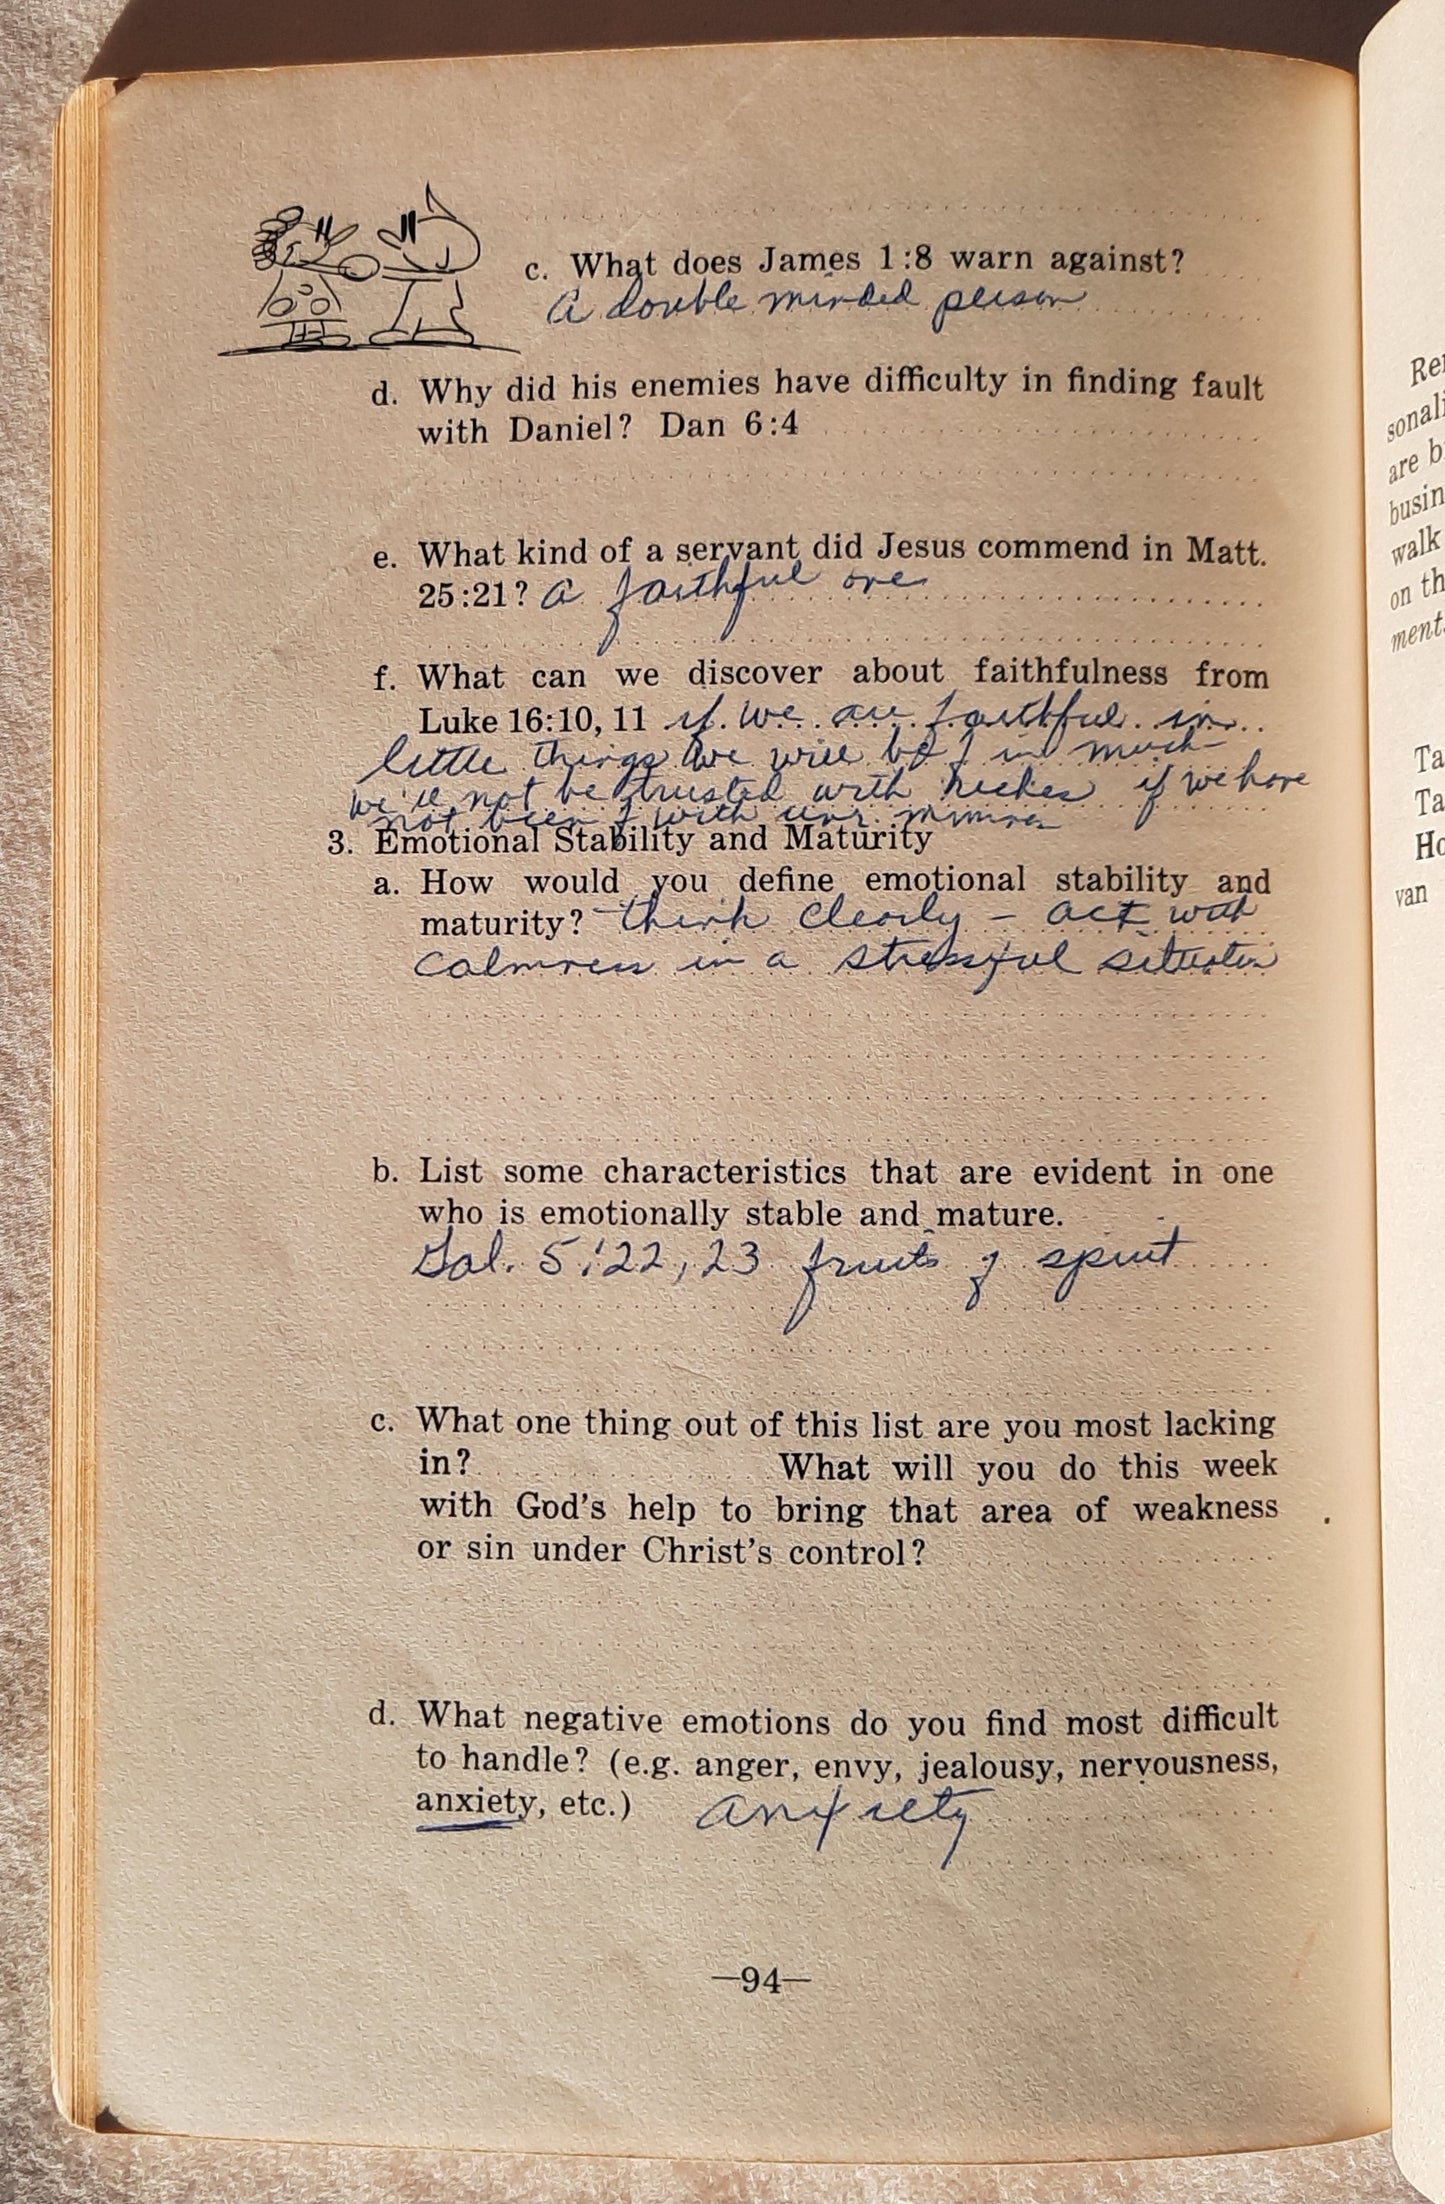 c. What does James 1:8 warn against?
A double minded person
d. Why did his enemies have difficulty in finding fault
with Daniel? Dan 6:4
e. What kind of a servant did Jesus commend in Matt.
25:21? A faithful one
f. What can we discover about faithfulness from
Luke 16:10, 11 if we are faithful in
little things we will be f in much
we'll not be trusted with riches if we have
not been f with
3. Emotional Stability and Maturity
a. How would you define emotional stability and
maturity? - think clearly - act with
calmness in a stressful situation
b. List some characteristics that are evident in one
who is emotionally stable and mature.
Gal. 5:22, 23 fruits of spirit
c. What one thing out of this list are you most lacking
in? What will you do this week
with God's help to bring that area of weakness
or sin under Christ's control?
d. What negative emotions do you find most difficult
to handle? (e.g. anger, envy, jealousy, nervousness,
anxiety, etc.) anxiety
—94—
Rer
sonali
are b
busin
walk
on th
ment
Ta
Ta
Ho
van